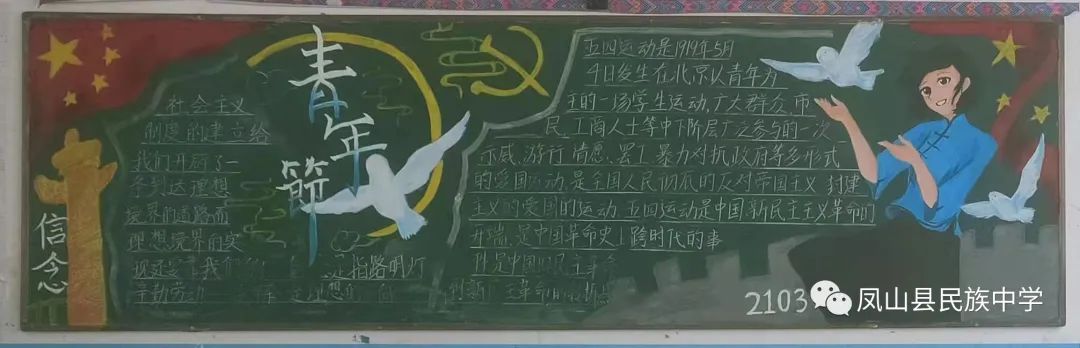 信念
社会主义
制度的建立给
我们开辟了一
条到达理想
境界的道路而
理想境界的实
现还要靠我们的
辛勤劳动
青年節
指路明灯
五四运动是1919年5月
4日发生在北京以青年为
主的一场学生运动,广大群众,市
民,工商人士等中下阶层广泛参与的一次
示威,游行,请愿,罢工,暴力对抗政府等多形式
的爱国运动,是全国人民彻底的反对帝国主义,封建
主义的爱国的运动,五四运动是中国新民主主义革命的
开端,是中国革命史上跨时代的事
件是中国旧民主革命
2103
凤山县民族中学